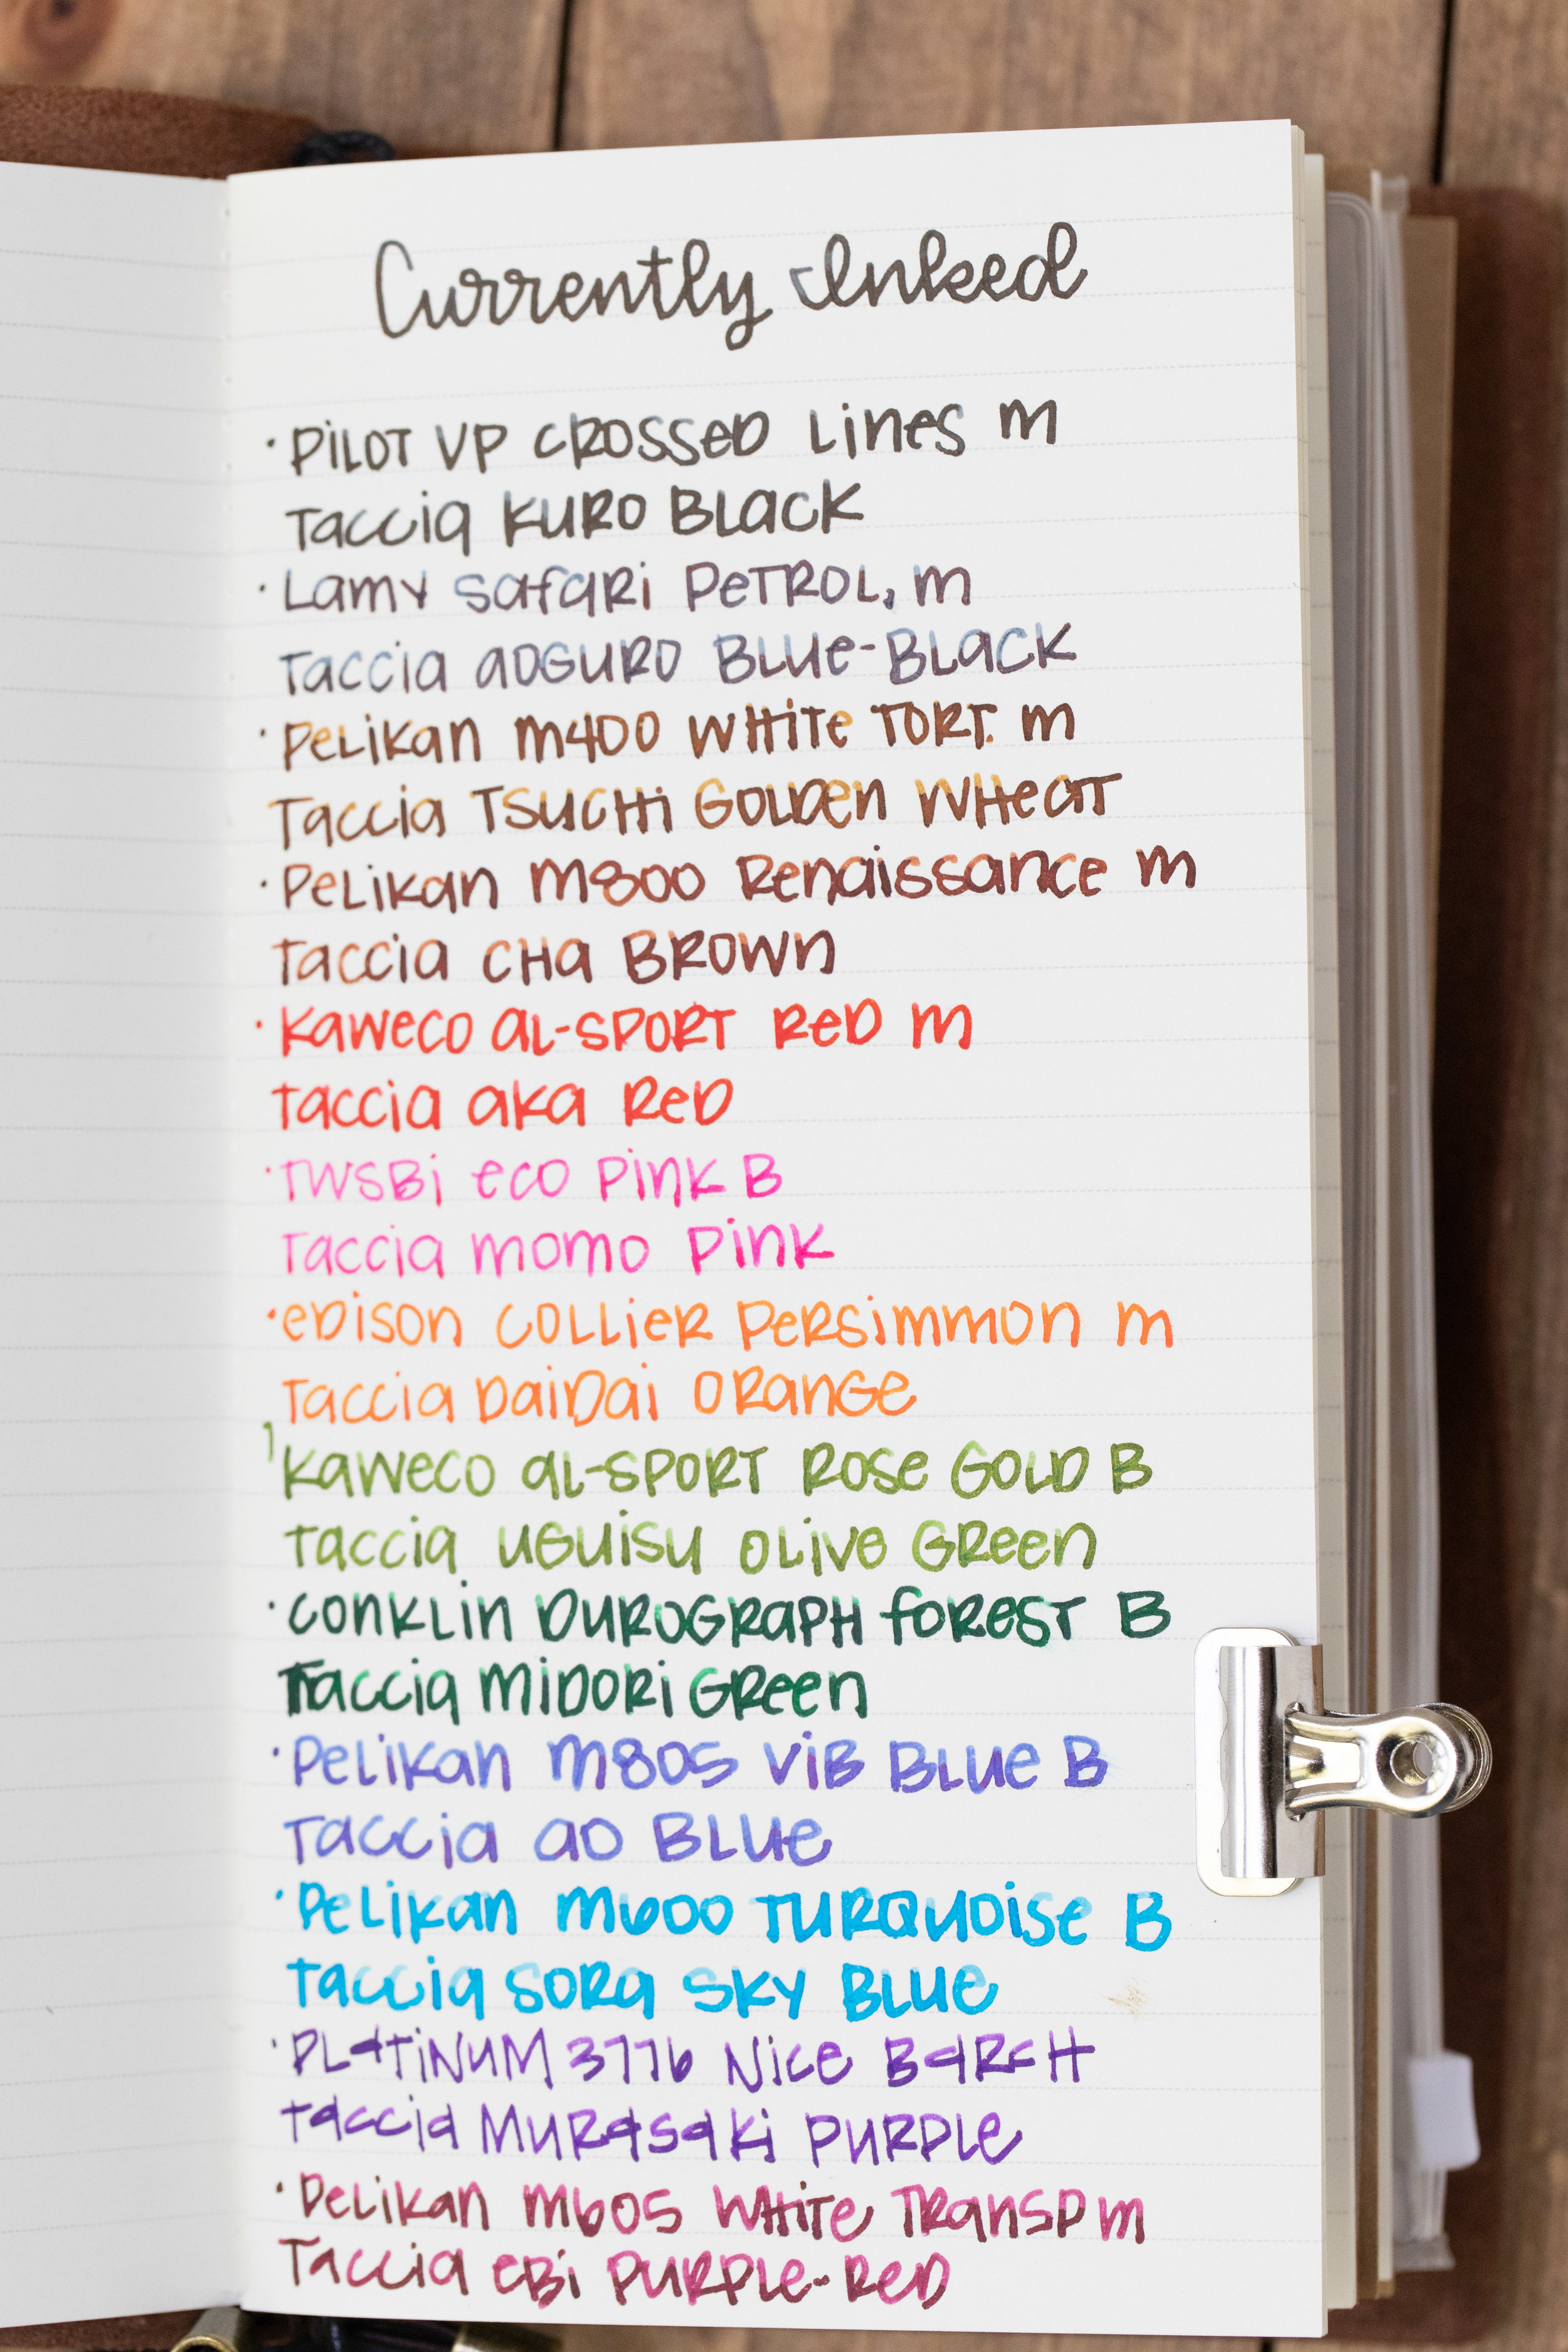 Currently Inked
· PiLOT VP CROSSED Lines m
Taccia KURO BLACK
· Lamy Safari PETROL, m
Taccia aoguro BLUE-BLACK
· PeLiKan m400 WHite TORT. m
Taccia TSUCHi GOLDen WHeaT
· PeLiKan m800 Renaissance m
Taccia CHa BROWn
· Kaweco aL-SPORT ReD m
Taccia aKa ReD
· TWSBi eco Pink B
Taccia momo Pink
· eDison COLLieR PeRSimmon m
Taccia DaiDai ORanGe
· Kaweco aL-SPORT ROSe GOLD B
Taccia UGUiSU OLive GReen
· COnKLin DUROGRaPH foReST B
Taccia MiDORi GReen
· PeLiKan m805 ViB BLUe B
Taccia aO BLUe
· PeLiKan m600 TURQUOiSe B
Taccia SORa SKY BLUe
· PLaTiNUM 3776 NiCe BaRCH
Taccia MURaSaKi PURPLe
· PeLiKan m605 WHiTe TRanSP m
Taccia eBi PURPLe-ReD